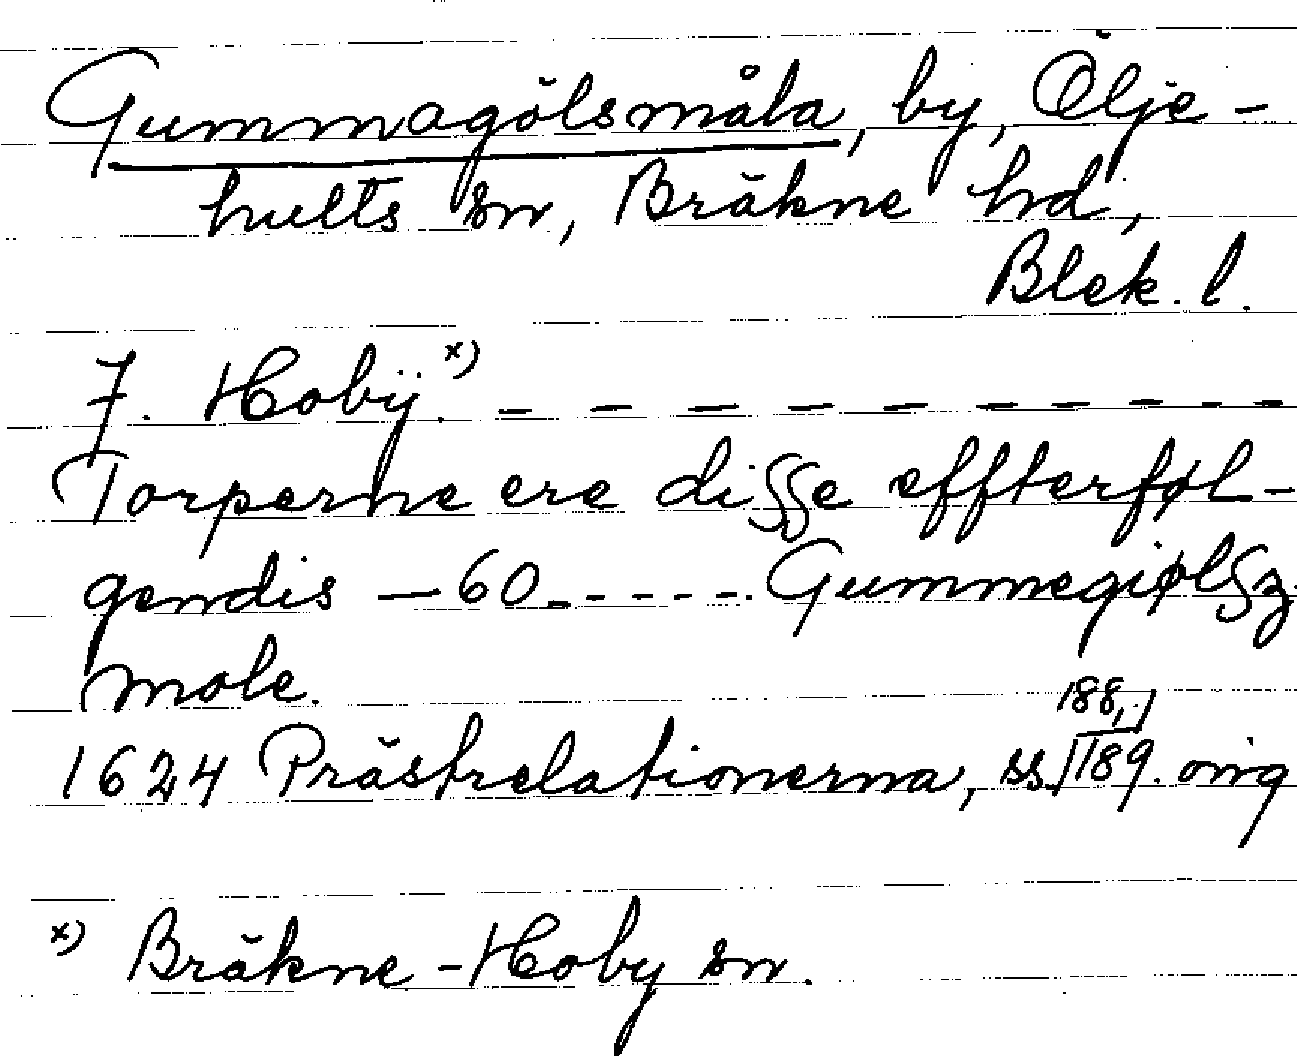 Gummagölsmåla, by, Ölje-
hults sn, Bräkne hd,
Blek. l.
J. Hobÿ. x) - - - - - - - - - -
Torperne ere disse effterføl-
gendis — 60 - - - - - Gummegiølsz
mole.
1624 Prästrelationerna, ss. 188, 189. orig
x) Bräkne-Hoby sn.